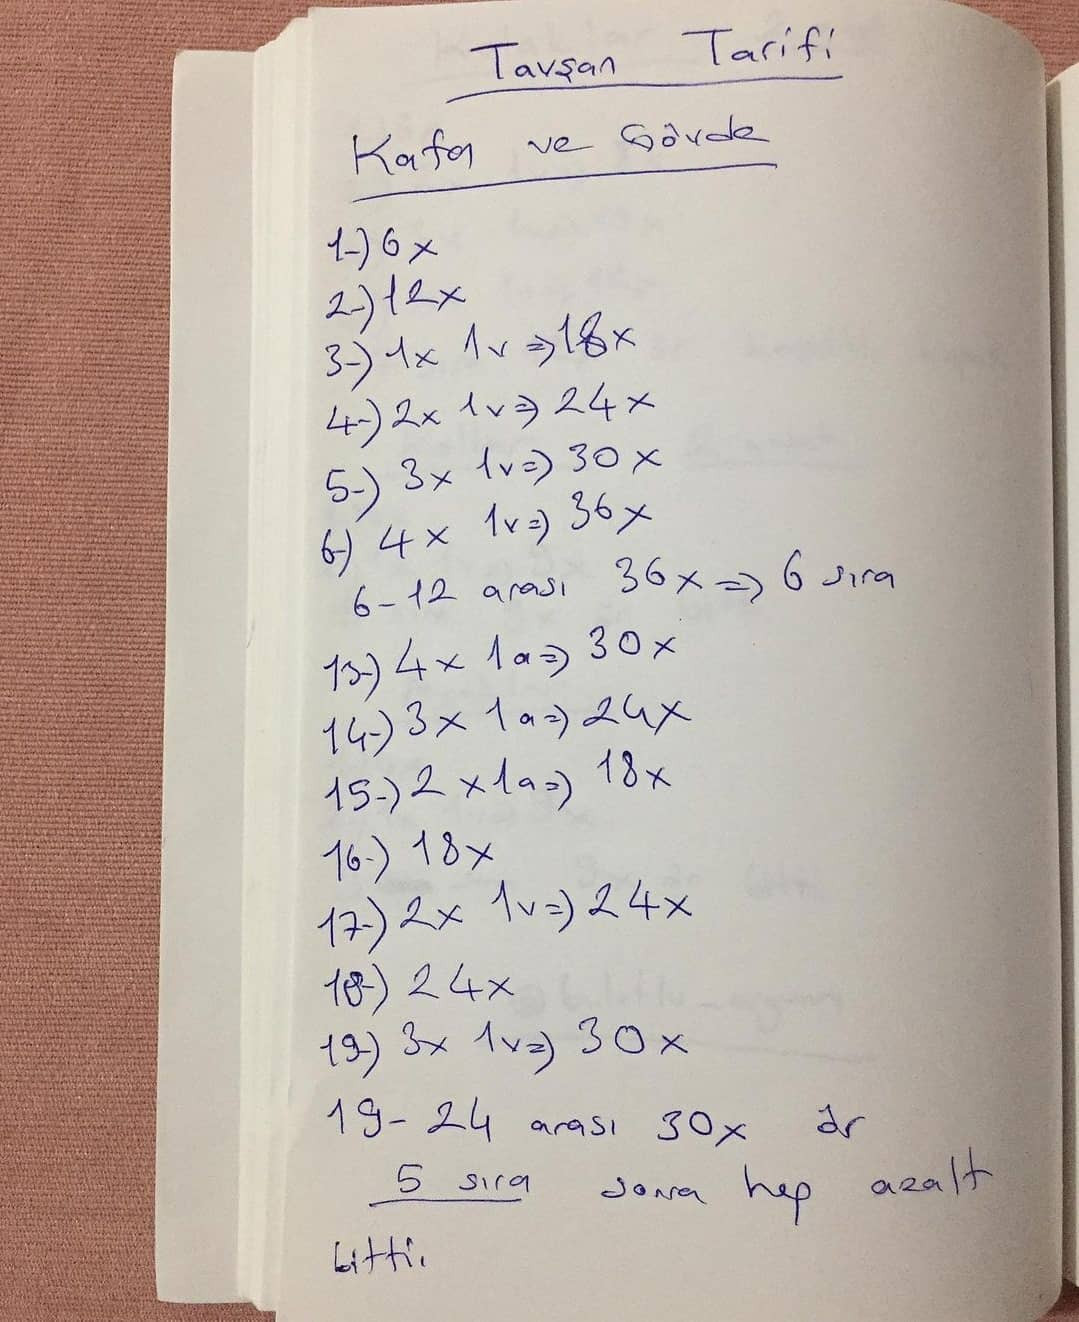 Tavşan Tarifi
Kafa ve Gövde
1-) 6x
2-) 12x
3-) 1x 1v => 18x
4-) 2x 1v => 24x
5-) 3x 1v => 30x
6-) 4x 1v => 36x
6-12 arası 36x => 6 sıra
13-) 4x 1a => 30x
14-) 3x 1a => 24x
15-) 2x 1a => 18x
16-) 18x
17-) 2x 1v => 24x
18-) 24x
19-) 3x 1v => 30x
19-24 arası 30x ör
5 sıra sonra hep azalt
bitti.